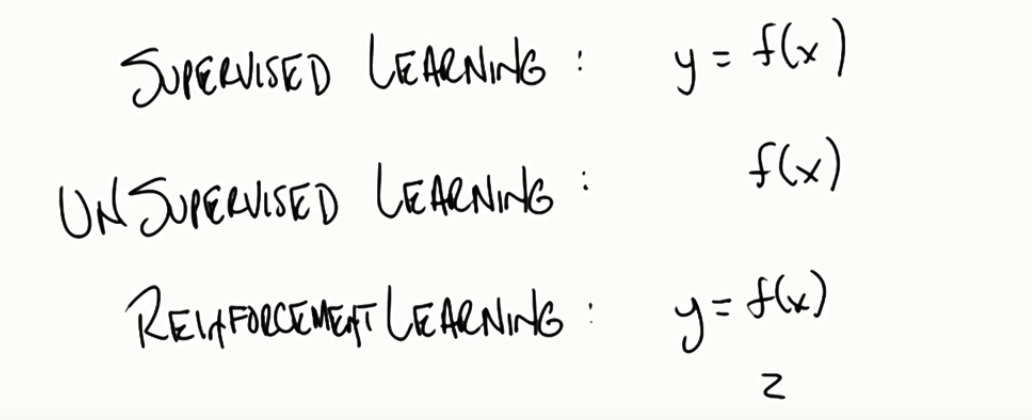 SUPERVISED LEARNING : y = f(x)
UNSUPERVISED LEARNING : f(x)
REINFORCEMENT LEARNING : y = f(x)
z